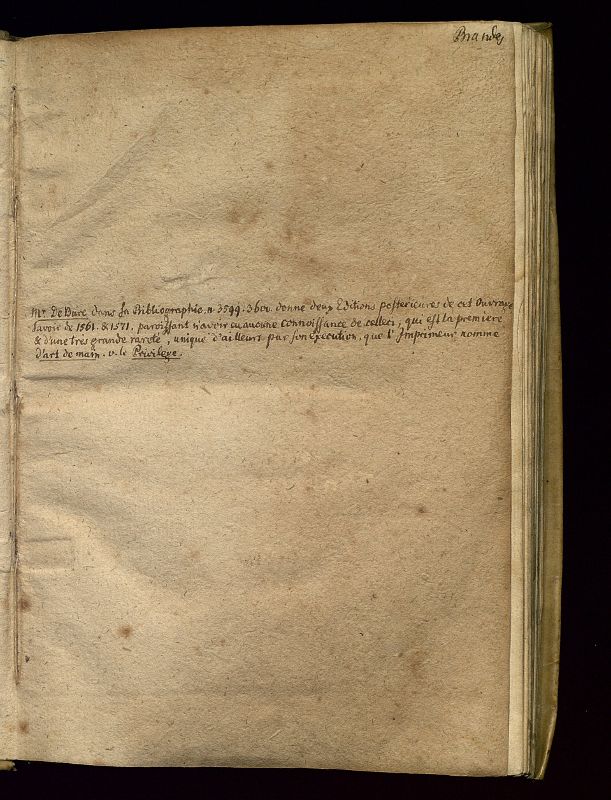 Brandes
Mr. De Bure dans sa Bibliographie. n. 3599. 3600. donne deux Editions posterieures de cet Ouvrage
savoir de 1561. & 1571. paroissant n'avoir eu aucune connoissance de celleci, qui est la premiere
& d'une tres grande rareté, unique d'ailleurs par son Execution, que l'Imprimeur nomme
d'art de main. v. le Privilege.